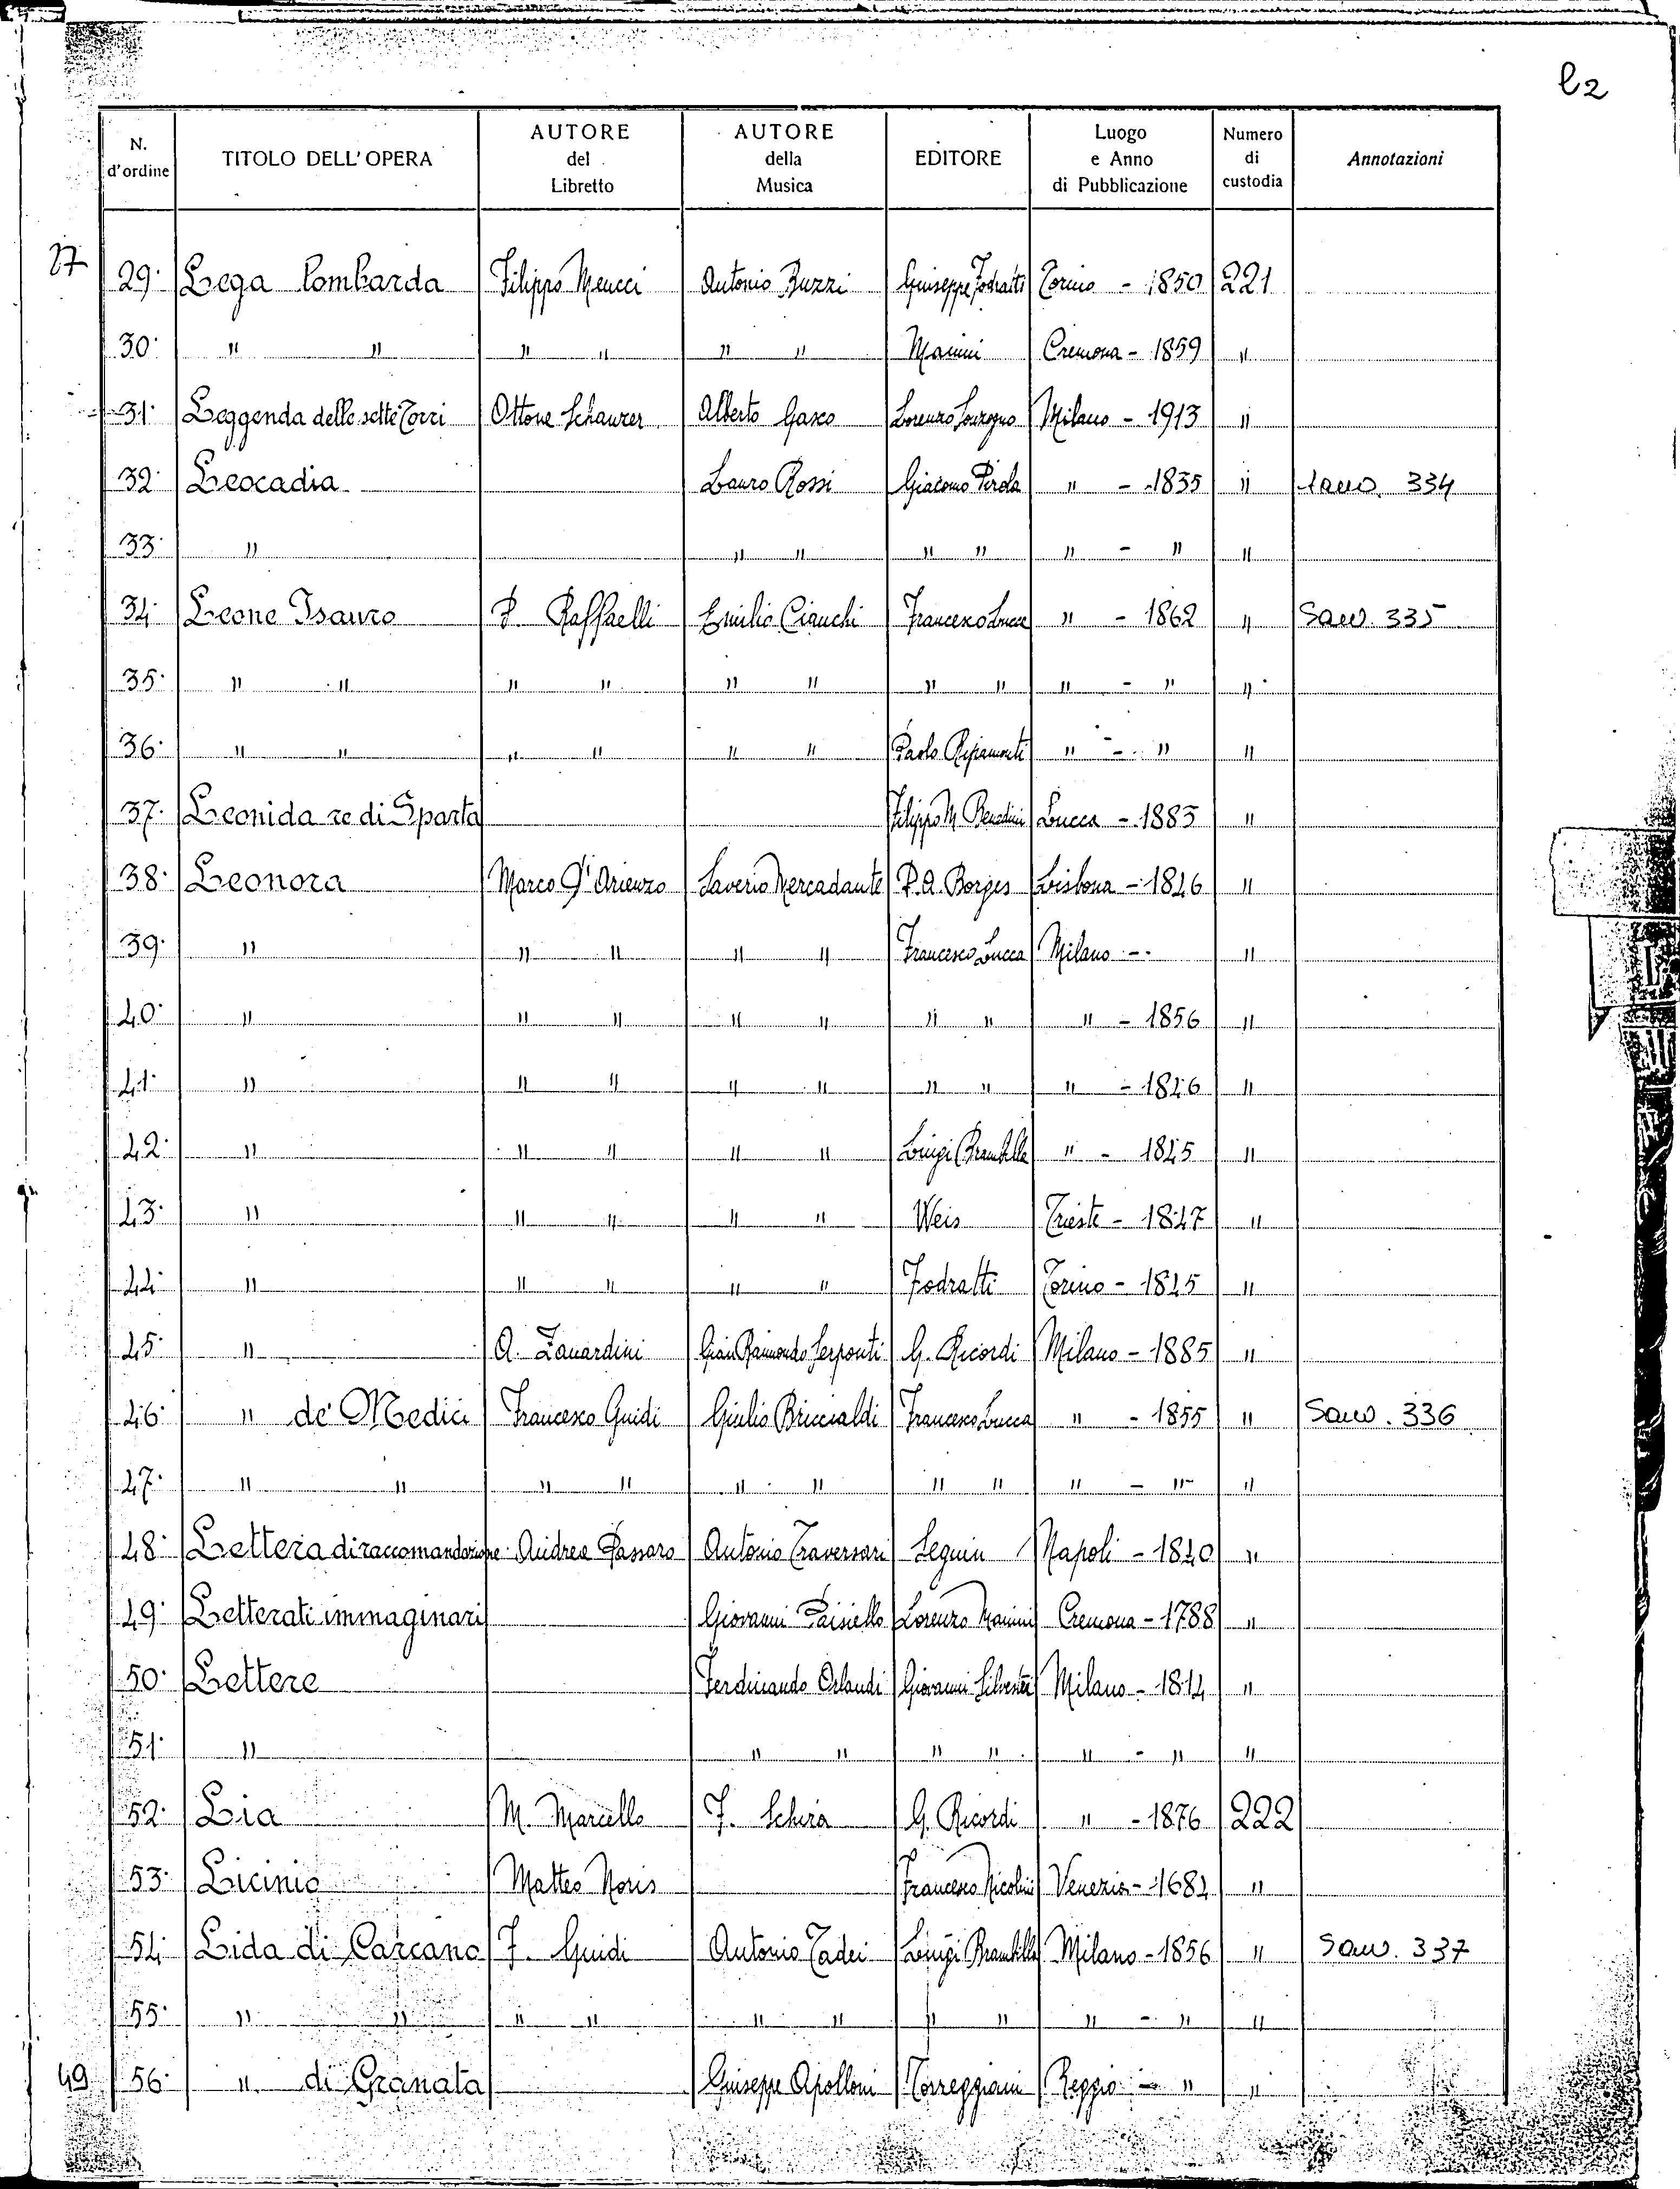 l2
N. d'ordine | TITOLO DELL'OPERA | AUTORE del Libretto | AUTORE della Musica | EDITORE | Luogo e Anno di Pubblicazione | Numero di custodia | Annotazioni
27 29. Lega Lombarda | Filippo Meucci | Antonio Buzzi | Giuseppe Fodratti | Torino - 1850 | 221
30. " " | " " | " " | Manini | Cremona - 1859 | "
31. Leggenda delle sette Torri | Ottone Schanzer | Alberto Gasco | Lorenzo Sonzogno | Milano - 1913 | "
32. Leocadia | | Lauro Rossi | Giacomo Pirola | " - 1835 | " | 334
33. " | | " " | " " | " - " | "
34. Leone Isauro | P. Raffaelli | Emilio Cianchi | Francesco Lucca | " - 1862 | " | Saw. 335
35. " " | " " | " " | " " | " - " | "
36. " " | " " | " " | Paolo Ripamonti | " - " | "
37. Leonida re di Sparta | | | Filippo M. Benedini | Lucca - 1883 | "
38. Leonora | Marco D'Arienzo | Saverio Mercadante | P. A. Borges | Lisbona - 1846 | "
39. " | " " | " " | Francesco Lucca | Milano - | "
40. " | " " | " " | " " | " - 1856 | "
41. " | " " | " " | " " | " - 1846 | "
42. " | " " | " " | Luigi Brambilla | " - 1845 | "
43. " | " " | " " | Weis | Trieste - 1847 | "
44. " | " " | " " | Fodratti | Torino - 1845 | "
45. " | A. Zanardini | Gian Raimondo Serponti | G. Ricordi | Milano - 1885 | "
46. " de' Medici | Francesco Guidi | Giulio Briccialdi | Francesco Lucca | " - 1855 | " | Saw. 336
47. " " | " " | " " | " " | " - " | "
48. Lettera di raccomandazione | Andrea Passaro | Antonio Traversari | Seguin | Napoli - 1840 | "
49. Letterati immaginari | | Giovanni Paisiello | Lorenzo Manini | Cremona - 1788 | "
50. Lettere | | Ferdinando Orlandi | Giovanni Silvestri | Milano - 1814 | "
51. " | | " " | " " | " - " | "
52. Lia | M. Marcello | F. Schira | G. Ricordi | " - 1876 | 222
53. Licinio | Matteo Noris | | Francesco Nicolini | Venezia - 1684 | "
54. Lida di Carcano | F. Guidi | Antonio Tadei | Luigi Brambilla | Milano - 1856 | " | Saw. 337
55. " " | " " | " " | " " | " - " | "
49 56. " di Granata | | Giuseppe Apolloni | Torreggiani | Reggio - " | "